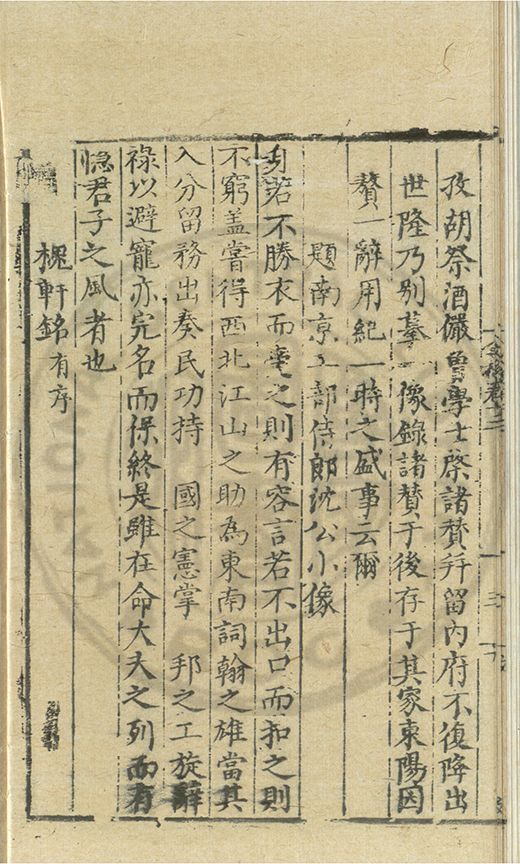 孜胡祭酒儼魯學士棨諸贊并留內府不復降出
世隆乃别摹一像錄諸贊于後存于其家東陽因
贅一辭用紀一時之盛事云爾
題南京工部侍郎沈公小像
身若不勝衣而即之則有容言若不出口而扣之則
不窮盖嘗得西北江山之助為東南詞翰之雄當其
入分留務出奏民功持 國之憲掌 邦之工旋辭
祿以避寵亦完名而保終是雖在命大夫之列而有
隐君子之風者也
槐軒銘有序